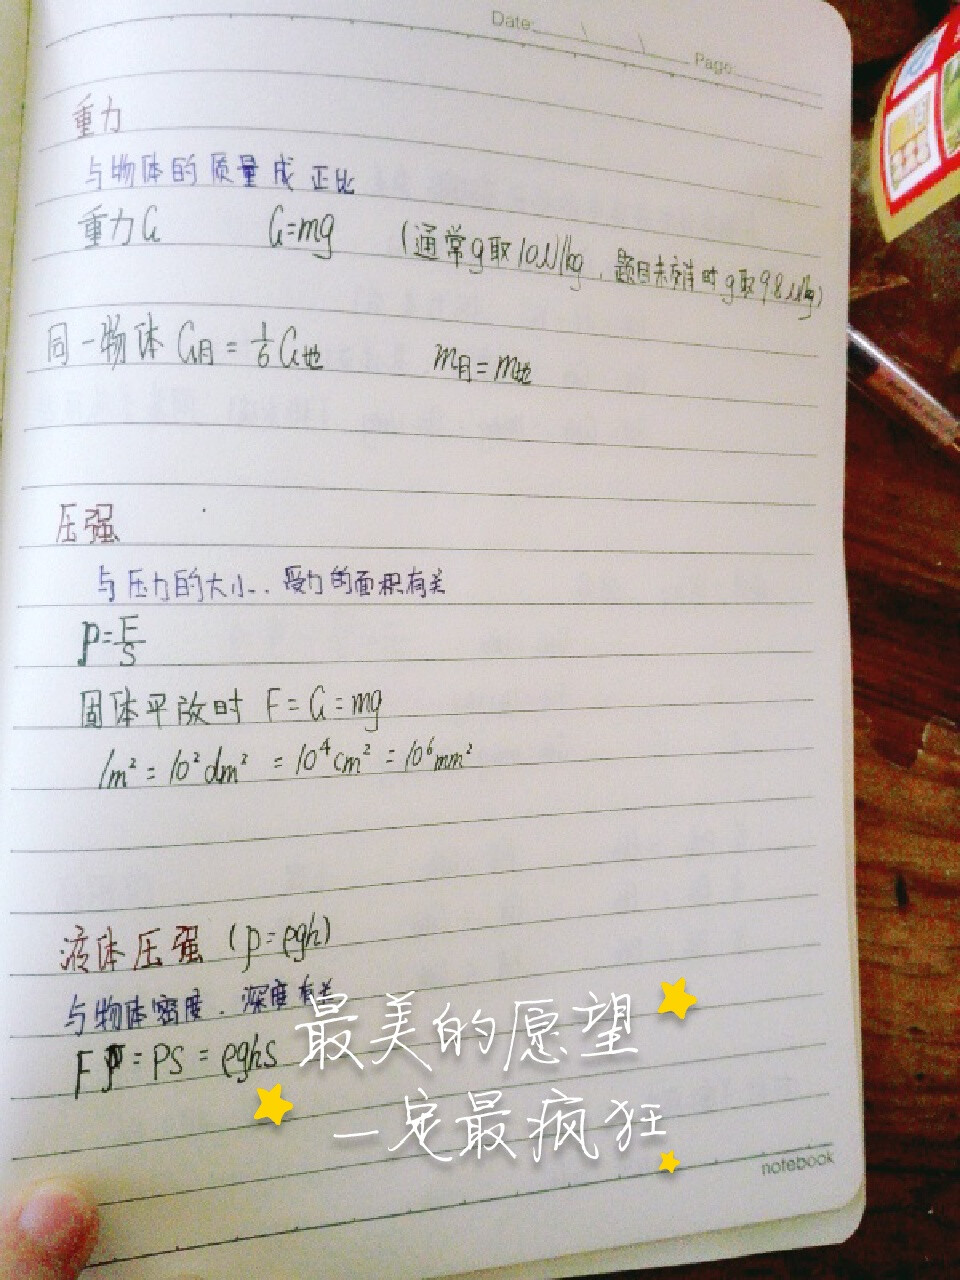 Date:
Page
重力
与物体的质量成正比
重力G G=mg (通常g取10N/kg,题目未交待时g取9.8N/kg)
同一物体 G月=1/6G地 m月=m地
压强
与压力的大小、受力的面积有关
p=F/S
固体平放时 F=G=mg
1m²=10²dm²=10⁴cm²=10⁶mm²
液体压强(p=ρgh)
与物体密度、深度有关
F=PS=ρghs
最美的愿望
一定最疯狂
notebook